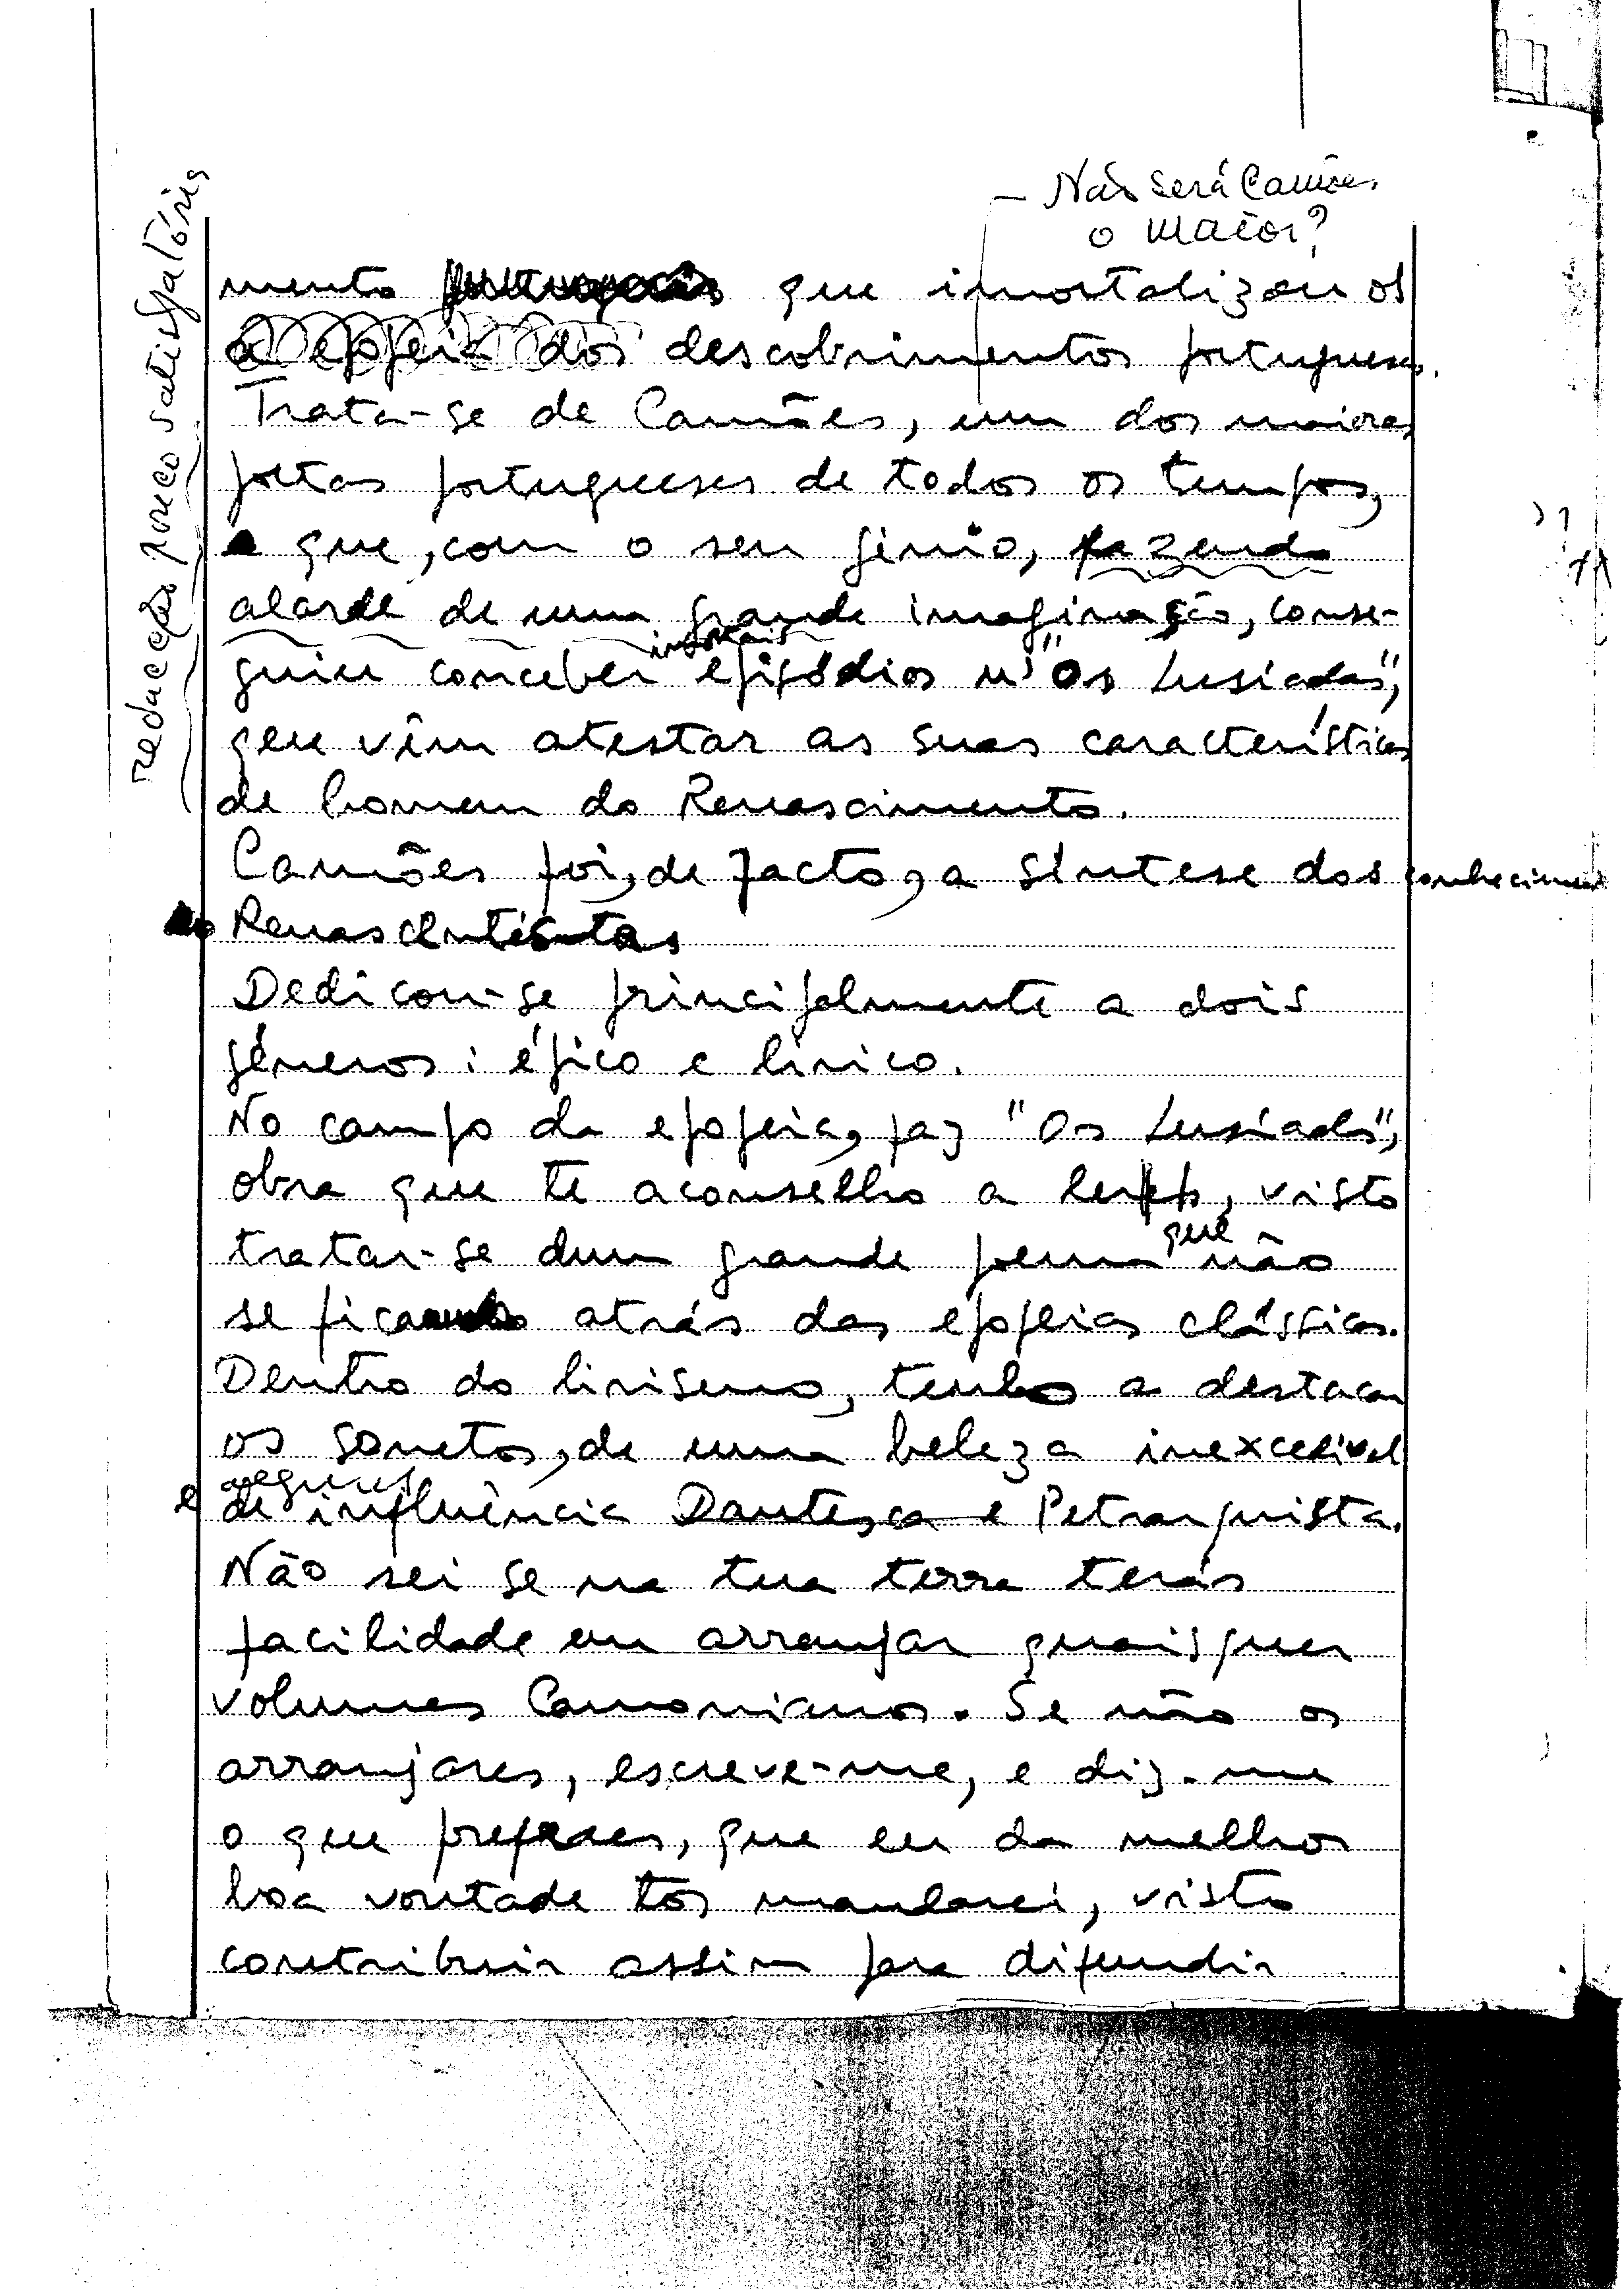 – Não será Camões
o maior?
redacção pouco satisfatória
mento que imortalizou os
a epopeia dos descobrimentos portugueses.
Trata-se de Camões, um dos maiores
poetas portugueses de todos os tempos,
que, com o seu génio, fazendo
alarde de uma grande imaginação, conse-
imortais
guiu conceber episódios n' "Os Lusíadas",
que vêm atestar as suas características
de homem do Renascimento.
Camões foi, de facto, a síntese dos conhecimentos
Renascentistas
Dedicou-se principalmente a dois
géneros: épico e lírico.
No campo da epopeia, faz "Os Lusíadas",
obra que te aconselho a ler, visto
que
tratar-se dum grande poema não
se fica atrás das epopeias clássicas.
Dentro do lirismo, tenho a destacar
os sonetos, de uma beleza inexcedível
e de influência Dantesca e Petrarquista.
Não sei se na tua terra terás
facilidade em arranjar quaisquer
volumes Camonianos. Se não os
arranjares, escreve-me, e diz-me
o que preferes, que eu da melhor
boa vontade tos mandarei, visto
contribuir assim para difundir